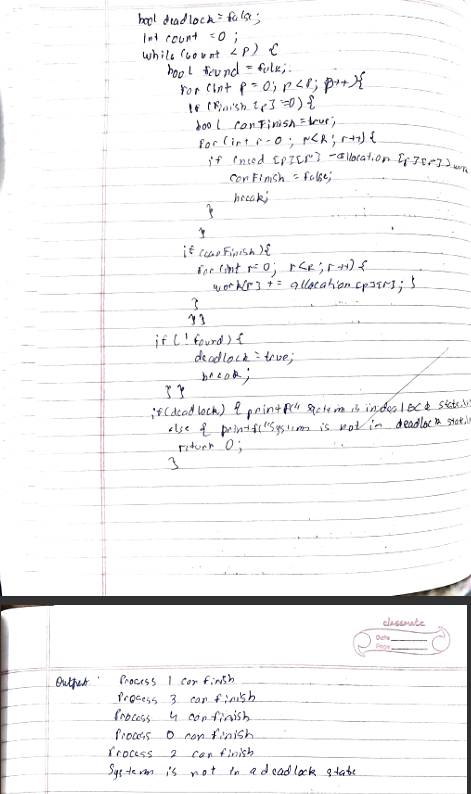 bool deadlock = false;
int count = 0;
while (count < P) {
bool found = false;
for (int p = 0; p < P; p++) {
if (finish [p] == 0) {
bool canFinish = true;
for (int r = 0; r < R; r++) {
if (need [p][r] - allocation [p][r] > work
canFinish = false;
break;
}
}
if (canFinish) {
for (int r = 0; r < R; r++) {
work[r] += allocation [p][r]; }
}
}}
if (! found) {
deadlock = true;
break;
} }
if (deadlock) { printf(" System is in deadlock state.
else { printf("System is not in deadlock state.
return 0;
}
classmate
Date
Page
Output : Process 1 can finish
Process 3 can finish
Process 4 can finish
Process 0 can finish
Process 2 can finish
System is not in a deadlock state